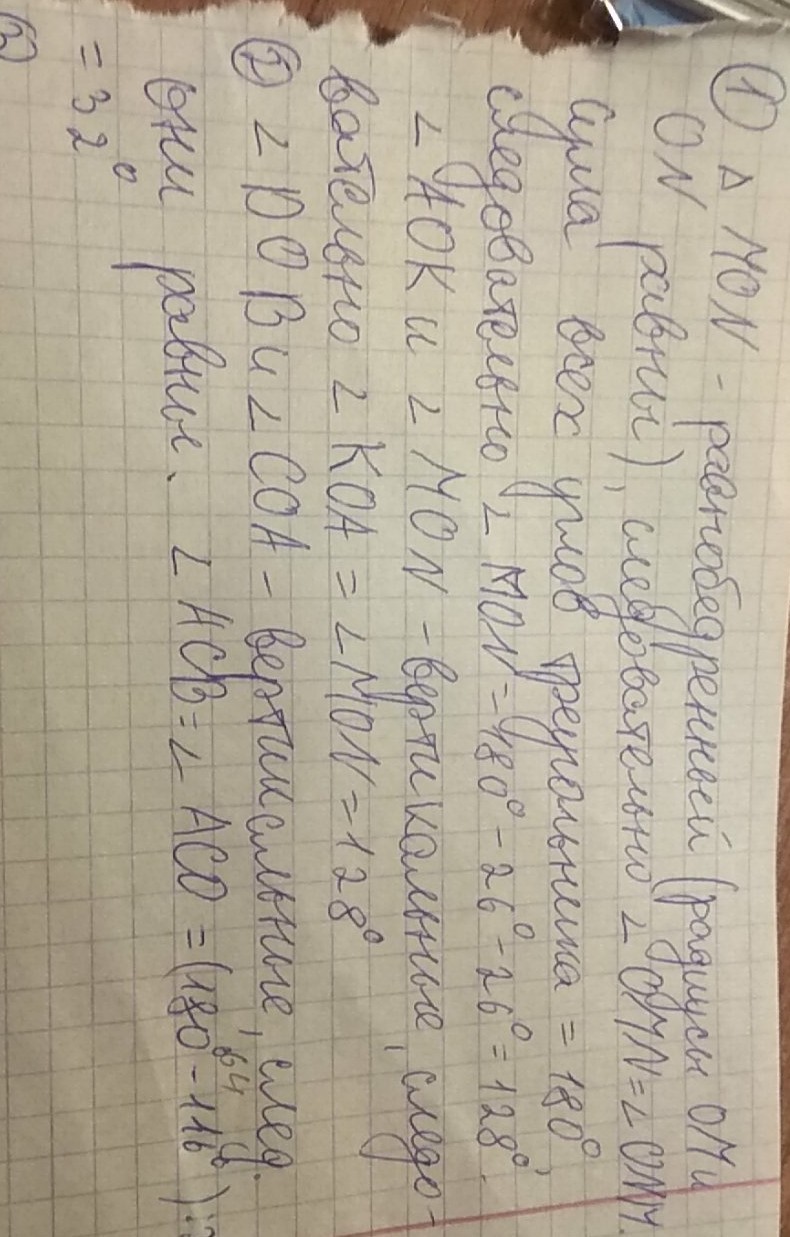 ① △ MON - равнобедренный (радиусы OM и
ON равны), следовательно ∠ OMN = ∠ ONM.
Сумма всех углов треугольника = 180°,
следовательно ∠ MON = 180° - 26° - 26° = 128°.
∠ AOK и ∠ MON - вертикальные, следо-
вательно ∠ KOA = ∠ MON = 128°
② ∠ DOB и ∠ COA - вертикальные, след.
64
они равные. ∠ ACB = ∠ ACO = (180° - 116°) :2
= 32°